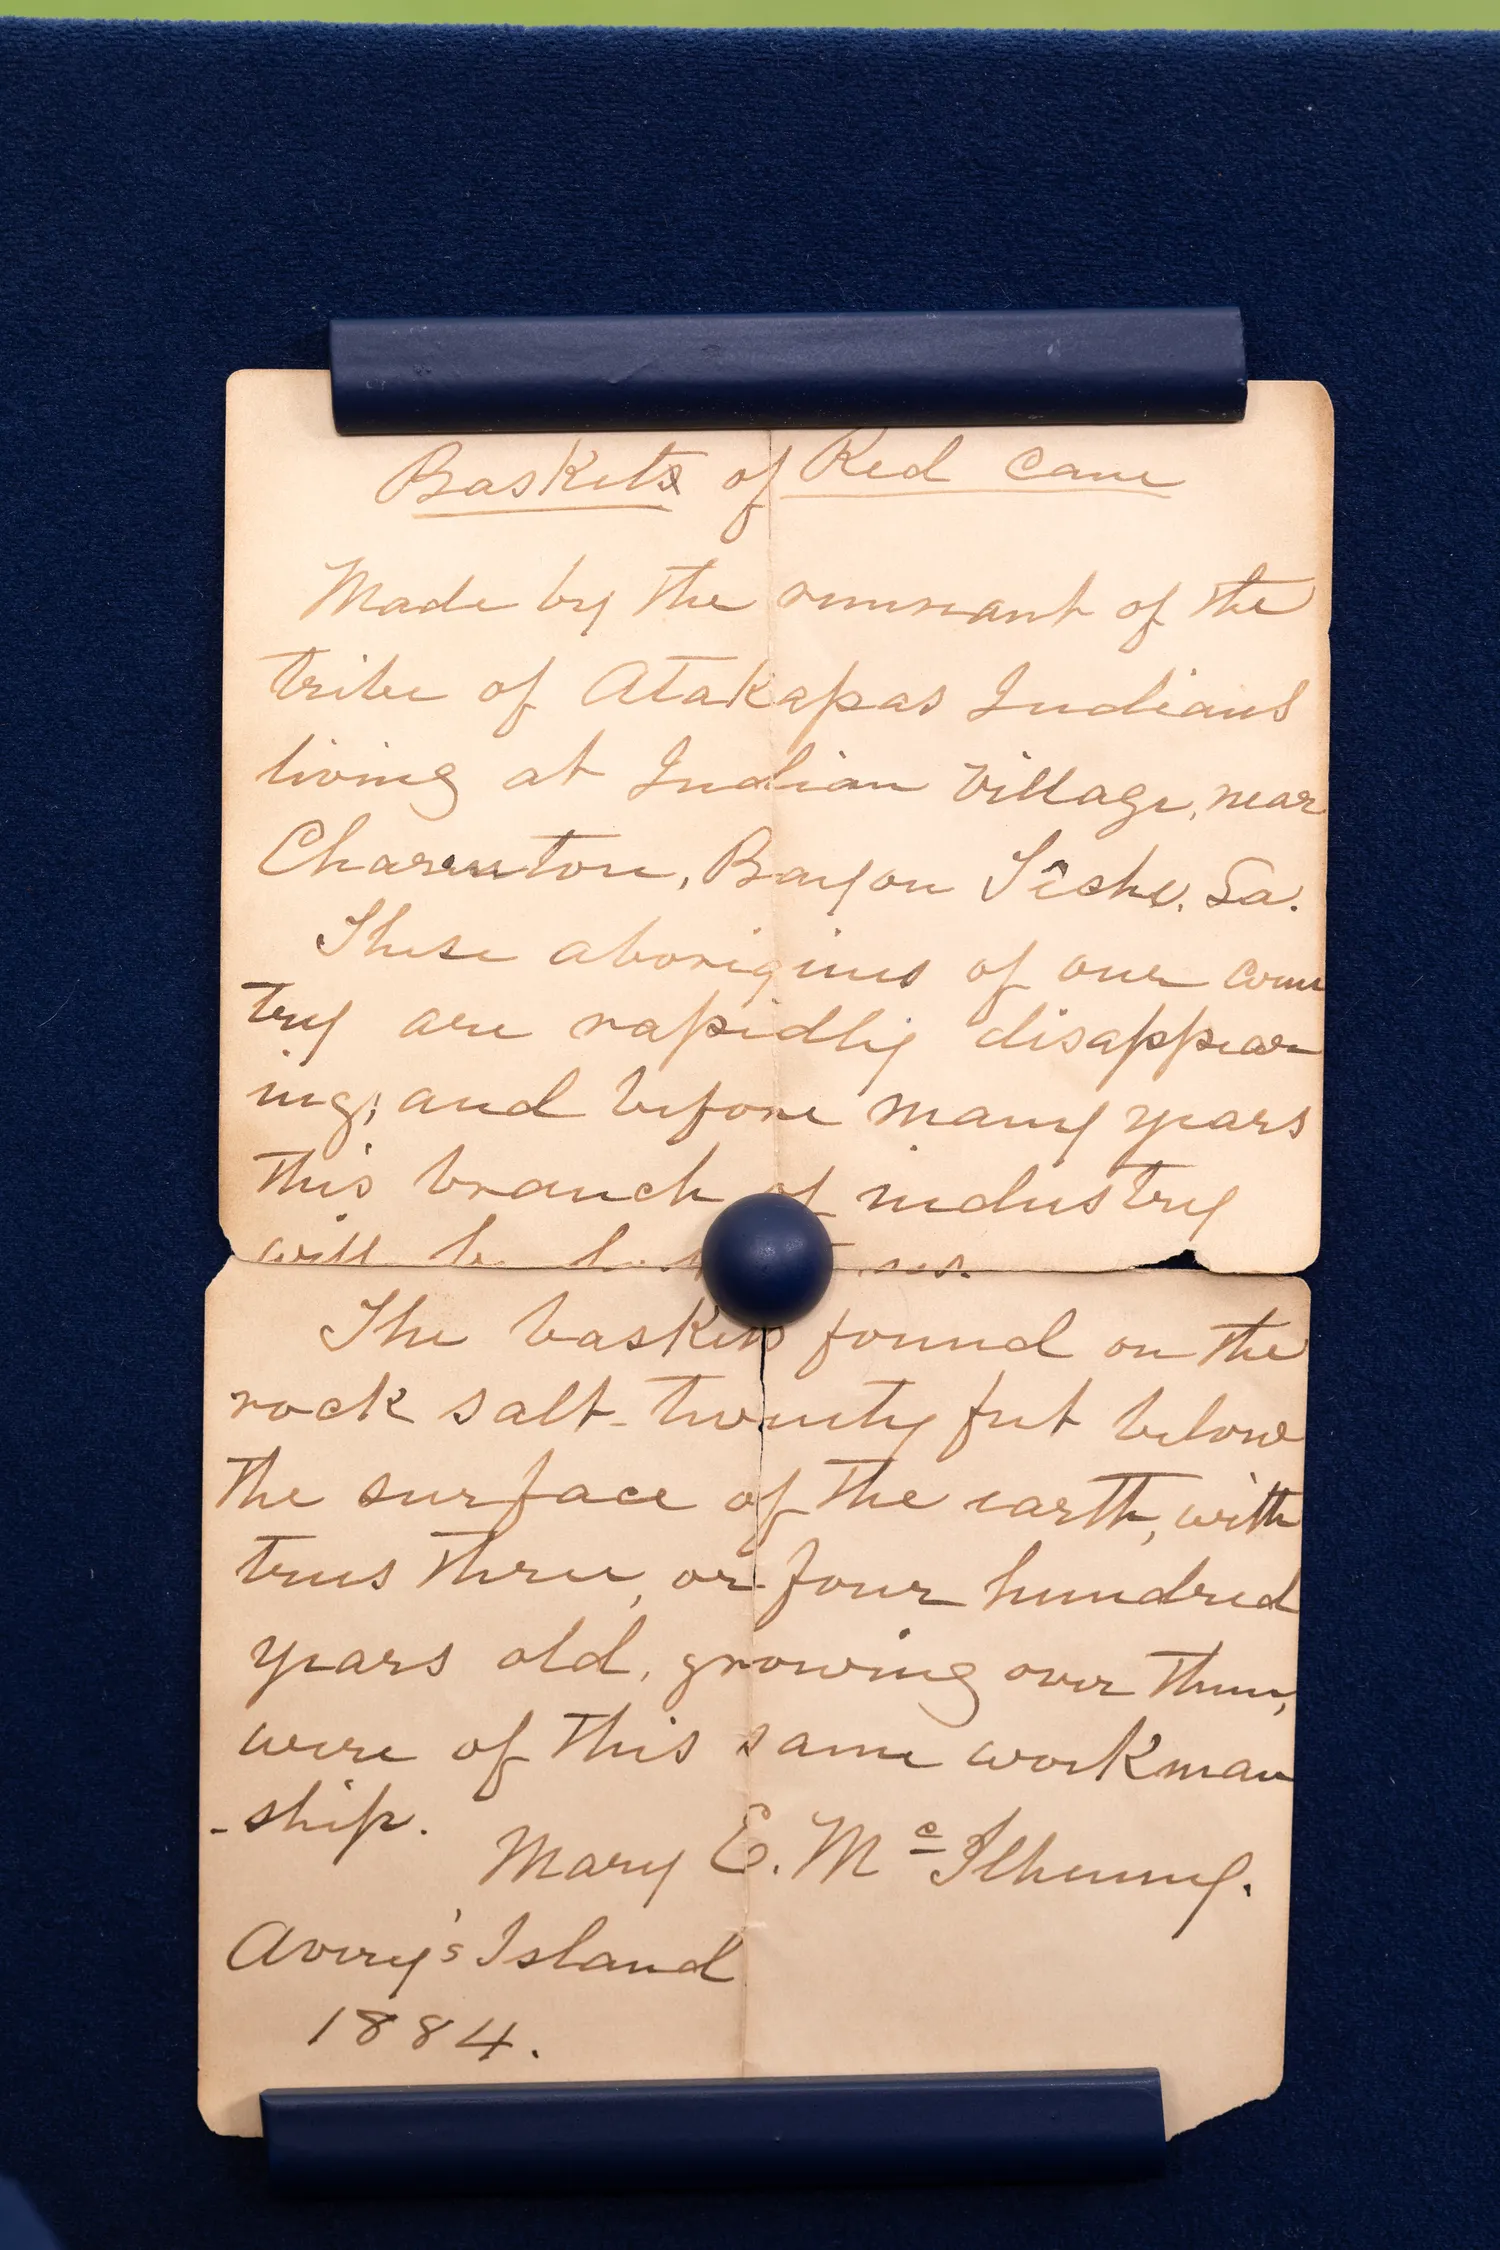 Baskets of Red Cane
Made by the remnant of the
tribe of Atakapas Indians
living at Indian Village, near
Charenton, Bayou Têche, La.
These aborigines of our coun
try are rapidly disappear
ing; and before many years
this branch of industry
will be
The baskets found on the
rock salt - twenty feet below
the surface of the earth, with
trees three, or four hundred
years old, growing over them,
were of this same workman
-ship.
Mary E. Mc Ilhenny.
Avery's Island
1884.